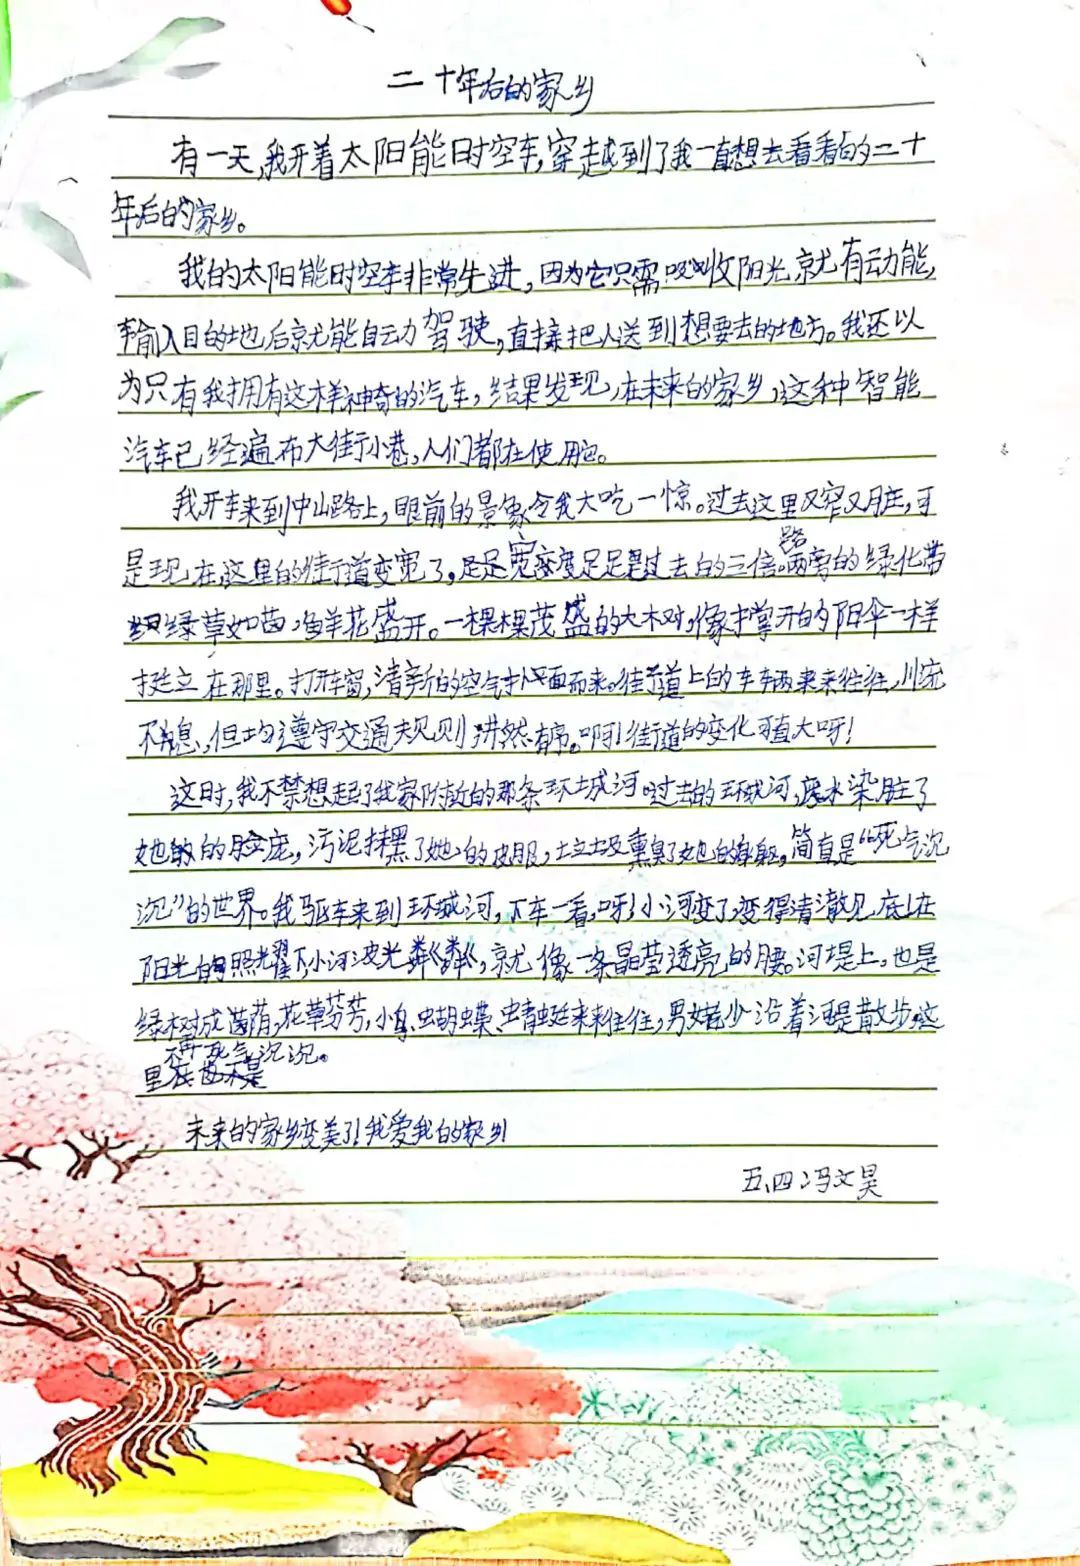 二十年后的家乡
有一天,我开着太阳能时空车,穿越到了我一直想去看看的二十
年后的家乡。
我的太阳能时空车非常先进,因为它只需吸收阳光就有动能,
输入目的地后就能自动驾驶,直接把人送到想要去的地方。我还以
为只有我拥有这样神奇的汽车,结果发现,在未来的家乡,这种智能
汽车已经遍布大街小巷,人们都在使用它。
我开车来到中山路上,眼前的景象令我大吃一惊。过去这里又窄又脏,可
是现在,这里的街道变宽了,足足宽度足足是过去的三倍。路两旁的绿化带
绿草如茵,鲜花盛开。一棵棵茂盛的大树,像撑开的阳伞一样
挺立在那里。打开车窗,清新的空气扑面而来。街道上的车辆来来往往,川流
不息,但均遵守交通规则,井然有序。啊!街道的变化可真大呀!
这时,我不禁想起了我家附近的那条环城河。过去的环城河,废水染脏了
她的脸庞,污泥抹黑了她的皮肤,垃圾熏臭了她的身躯,简直是“死气沉
沉”的世界。我驱车来到环城河,下车一看,呀!小河变了,变得清澈见底!在
阳光的照耀下,小河波光粼粼,就像一条晶莹透亮的腰。河堤上,也是
绿树成荫,花草芬芳,小鸟、蝴蝶、蜻蜓来来往往,男女老少沿着河堤散步,这
里不再死气沉沉。
未来的家乡变美了!我爱我的家乡!
五、四 冯文昊